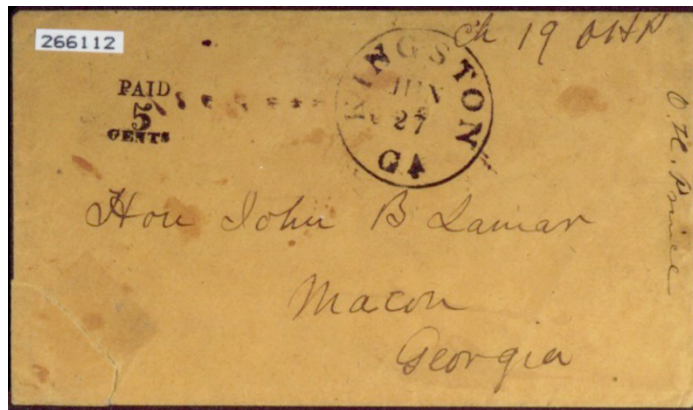 266112
Ch 19 OHP
PAID
5
CENTS
KINGSTON
JUN
27
GA
O. H. Prince
Hon John B Lamar
Macon
Georgia